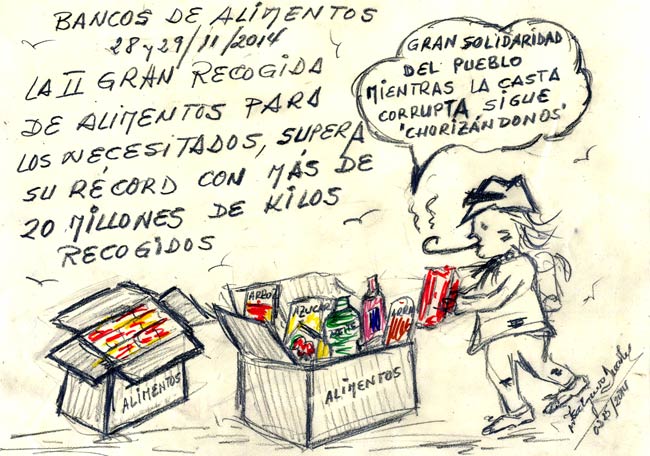 BANCOS DE ALIMENTOS
28 y 29/11/2014
LA II GRAN RECOGIDA
DE ALIMENTOS PARA
LOS NECESITADOS, SUPERA
SU RÉCORD CON MÁS DE
20 MILLONES DE KILOS
RECOGIDOS
GRAN SOLIDARIDAD
DEL PUEBLO
MIENTRAS LA CASTA
CORRUPTA SIGUE
'CHORIZÁNDONOS'
ARROZ
AZUCA
ALIMENTOS
ALIMENTOS